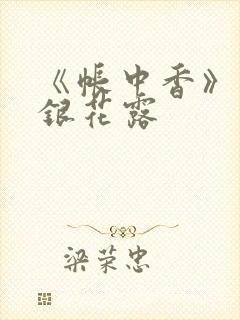 《帐中香》
银花露
梁荣忠